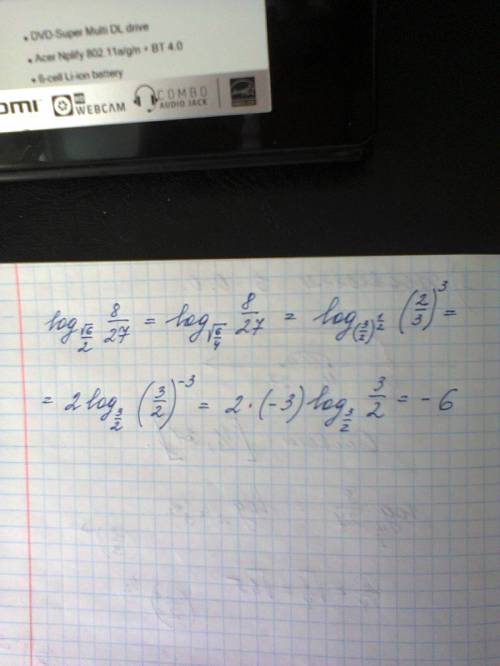 DVD-Super Multi DL drive
Acer Nplify 802.11a/g/n + BT 4.0
6-cell Li-ion battery
HD WEBCAM COMBO AUDIO JACK
log_{√6/2} 8/27 = log_{√(6/4)} 8/27 = log_{(3/2)^{1/2}} (2/3)^3 =
= 2 log_{3/2} (3/2)^{-3} = 2·(-3) log_{3/2} 3/2 = -6